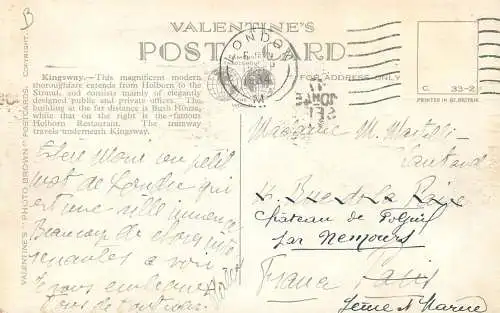 B
VALENTINE'S
POST CARD
Kingsway.—This magnificent modern
thoroughfare extends from Holborn to the
Strand, and consists mainly of elegantly
designed public and private offices. The
building at the far distance is Bush House,
while that on the right is the famous
Holborn Restaurant. The tramway
travels underneath Kingsway.
VALENTINE'S "PHOTO-BROWN" POSTCARDS. COPYRIGHT.
FOR ADDRESS ONLY
LONDON
C. 33-2
PRINTED IN GT. BRITAIN
un petit
mot de Londres qui
est une ville immense
Beaucoup de choses
a voir
Je vous embrasse
Madame M.
Rue de la Paix
Château de
par Nemours
France Paris
Seine & Marne